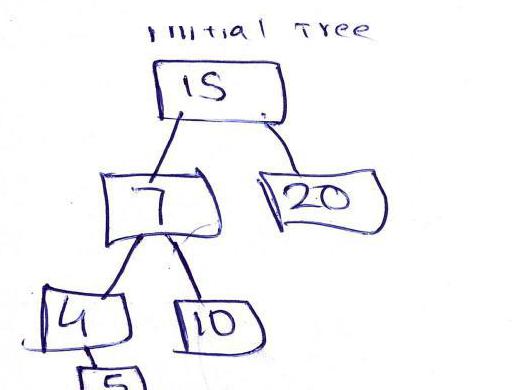 Initial Tree
15
7
20
4
10
5